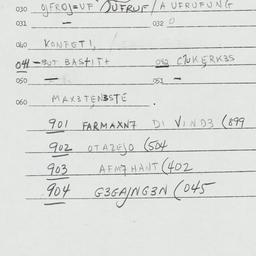 030 gFROJ=UF JUFRUF/AUFRUFUNG
031 — 032 0
040 KONFETI,
041 – BUT BASTITT 042 C7UKERK3S
050 — 051 –
060 MAX3TEN3STE
901 FARMAXN7 DI VIND3 (899
902 OTAZEJO (504
903 AFM7HANT (402
904 G3GAJNG3N (045